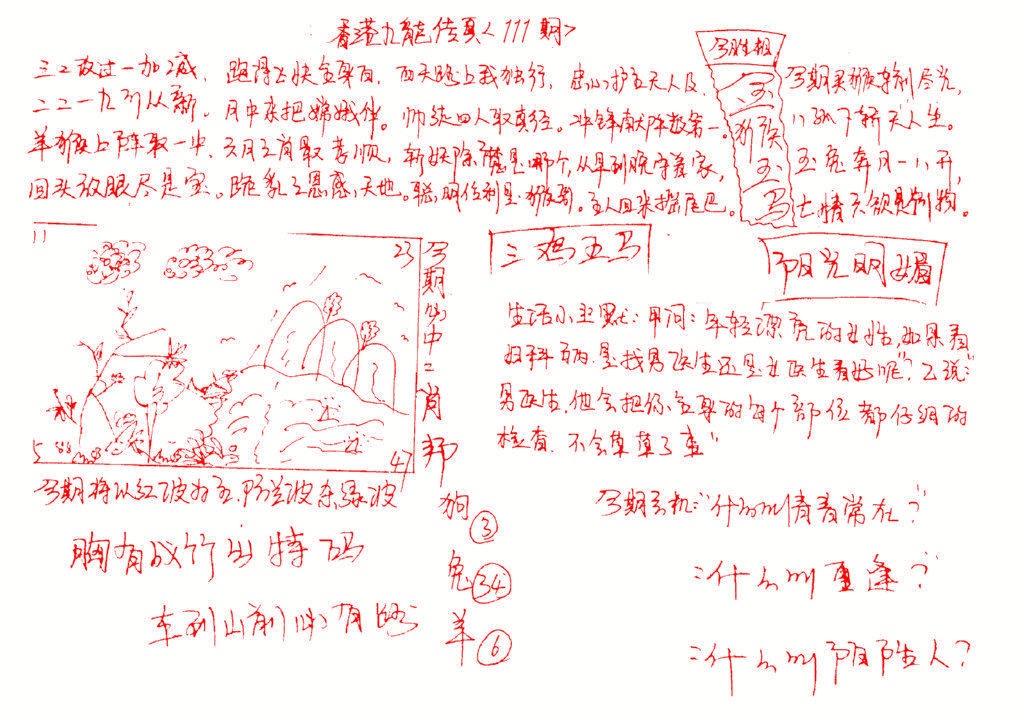 香港九龍传真<111期>
三二放过一加减，跑得飞快全身白，西天路上我独行，忠心护主天人及，
二二一九引从新。月中亲把嫦娥伴。师徒四人取真经。冲锋陷阵数第一。
羊猴上阵取一中，六月之前最孝顺，斩妖除魔是哪个，从早到晚守着家，
回头放眼尽是宝。跪乳之恩感天地。聪明伶利是猴哥。主人回来摇尾巴。
今期生相
玉
猴
玉
马
今期买猴
天人生。
玉兔奔月一八开，
七情六欲是动物。
11
23
5
47
今期必中一肖
三鸡五马
阳光明媚
生活小幽默：甲问：年轻漂亮的女性，如果看
妇科病是找男医生还是女医生看好呢？乙说：
男医生，他会把你全身的每个部位都仔细的
检查，不会草草了事"
今期将以红波为主，防兰波杀绿波
狗 ③
兔 34
羊 ⑥
胸有成竹出特码
车到山前必有路
今期玄机："什么叫情青常在？"
：什么叫重逢？"
：什么叫阴阳人？